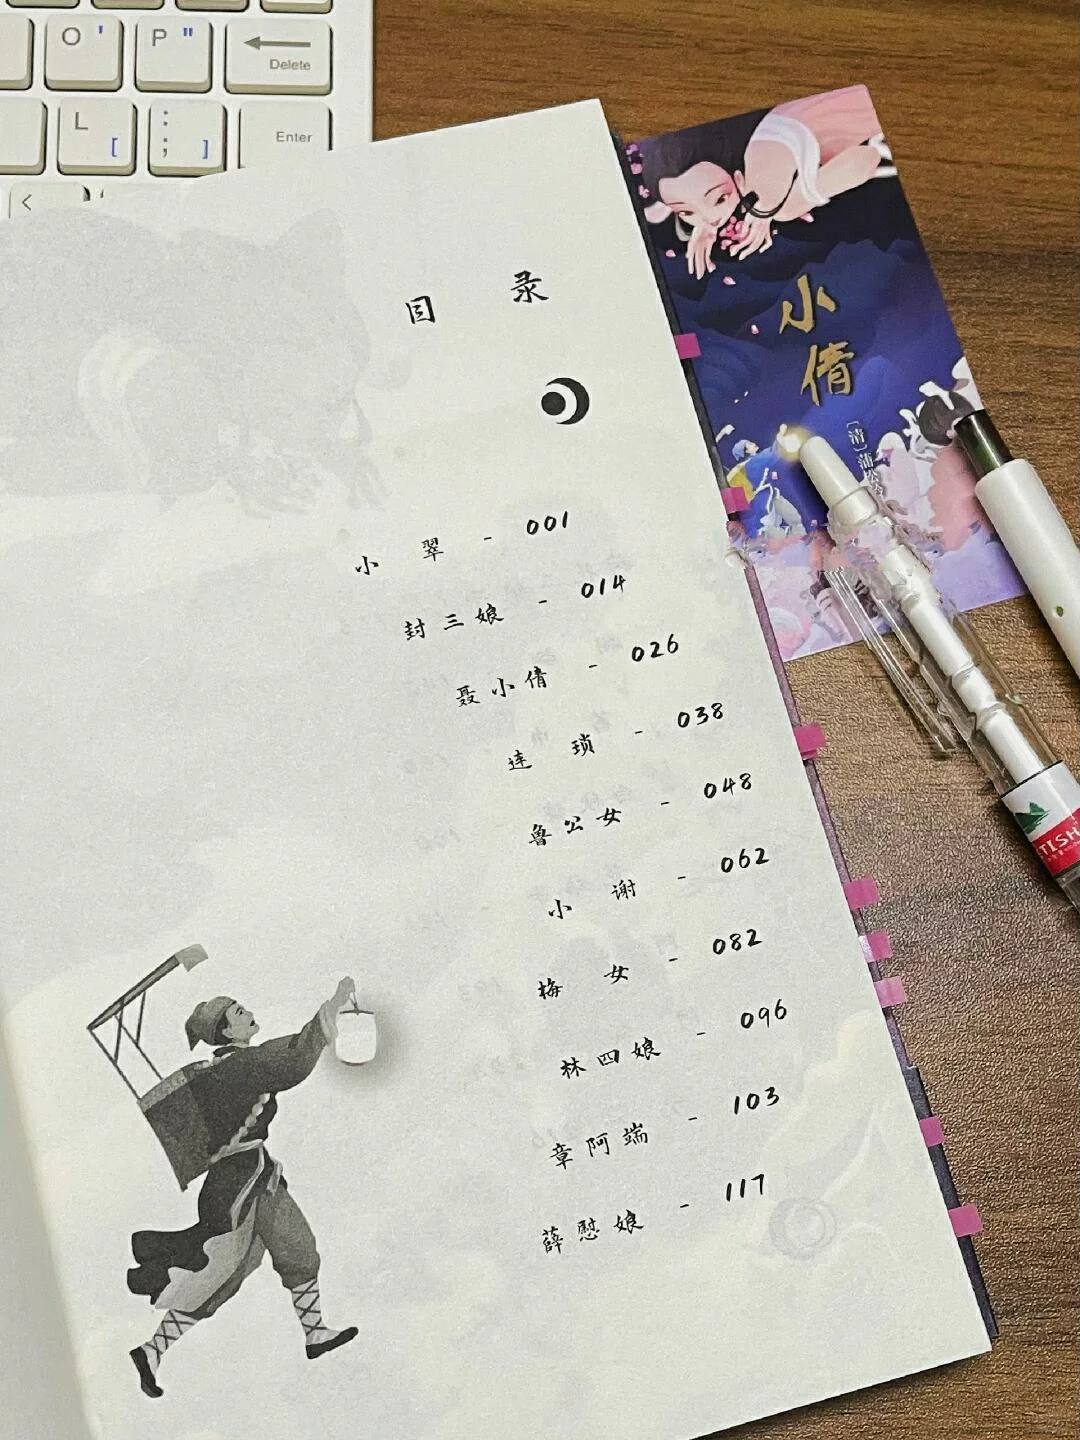 O '
P "
Delete
L [
: ; ]
Enter
<
目 录
小 翠 - 001
封三娘 - 014
聂小倩 - 026
连 琐 - 038
鲁公女 - 048
小 谢 - 062
梅 女 - 082
林四娘 - 096
章阿端 - 103
薛慰娘 - 117
小倩
[清]蒲松
TISH